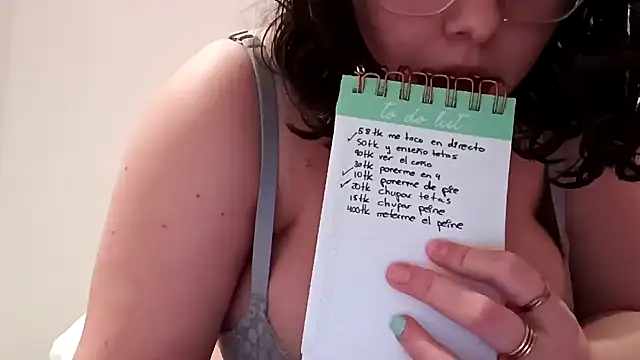 to do list
58tk me toco en directo
50tk y enseño tetas
90tk ver el coño
30tk ponerme en 4
10tk ponerme de pie
20tk chupar tetas
15tk chupar peine
400tk meterme el peine